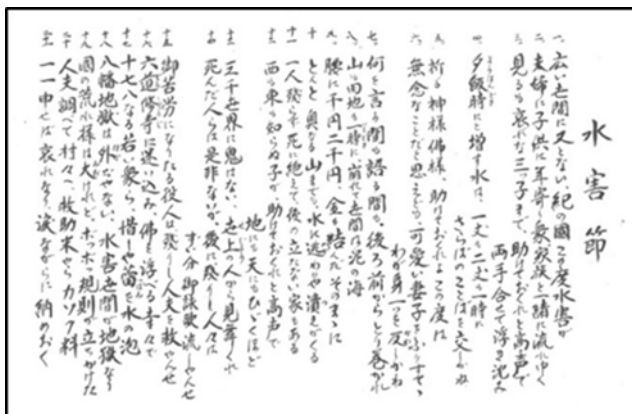 水害節
一、広い世間に又とない、紀の國 この度水害が
二、夫婦に子供に年寄に象家族と一諸に流れゆく
三、見るも哀れな三つ子まで、助けておくれと高声で
両手合せて浮き沈み
四、夕飯時にと増す水は、一丈も二丈も一時に
さらばのことばを交しかね
五、祈る神様佛様、助けておくれよこの度は
六、無念なことだと思えども可愛い妻子をふりすてゝ
わが身一つを渡しかね
七、何を言う間も語る間も、後ろ前からとり巻かれ
八、山も田地も一時に、崩れて世間は泥の海
九、腰に千円二千円、金も結んだそのまゝに
十、とんと奥なる山までも、水に逃わりや潰えがくる
十一、一人残らず死に絶えて、後の立たない家もある
十二、西も東も知らぬ子が助けておくれと高声で
地にも天にもひゞくほど
十三、三千世界に鬼はない、世上の人から見舞くれ
十四、死んだ人らは是非ないが、後に残りし人々は
すぐ分御談歎流しやんせ
十五、御苦労になったる役人は残りし人夫を救やんせ
十六、六道修寺に迷い込み、佛も浮べる幸々で
十七、十七八なる若い象ら、惜しや苗を水の泡
十八、八幡地獄は外だやない、水害世間が地獄なり
十九、國の流れ様は大けれど、ポッポツ規則が立ちかけた
二十、人夫調べて村々へ、救助米やらカソフ料
二十一、一一申せば哀れなり、涙ながらに納めおく